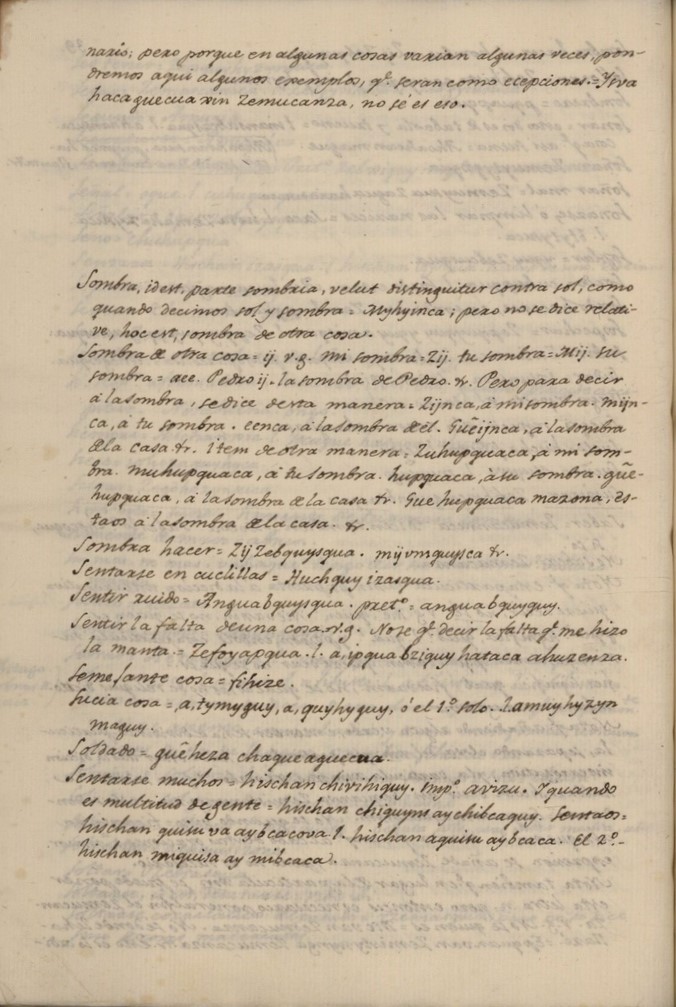 nario; pero porque en algunas cosas varian algunas veces, pon-
dremos aqui algunos exemplos, q.e seran como ecepciones.=Ysva
hacaguecua xin Zemucanza, no sé es eso.
Sombra, id est, parte sombria, velut distinguitur contra sol, como
quando decimos sol y sombra = Myhyinca; pero no se dice relati-
ve, hoc est, sombra de otra cosa.
Sombra de otra cosa = ij. v.g. mi sombra = Zij. tu sombra = Mij. su
sombra = aee. Pedro ij. la sombra de Pedro. &. Pero para decir
á la sombra, se dice desta manera = Zijnca, á mi sombra. mijn-
ca, á tu sombra. eenca, á la sombra de él. Guẽijnca, á la sombra
de la casa &. Item de otra manera = Zuhupquaca, á mi som-
bra. muhupquaca, á tu sombra. hupquaca, à su sombra. guẽ-
hupquaca, á la sombra de la casa &. Gue hupquaca mazona, es-
taos á la sombra de la casa. &.
Sombra hacer = Zij Zebquysqua. mij vmquysca &.
Sentarse en cuclillas = Huchquy izasqua.
Sentir ruido = Anguabquysqua. pret.o = anguabquyquy.
Sentir la falta de una cosa. v.g. No se q.e decir la falta q.e me hizo
la manta. = Zefoyapqua. l. a, ipqua bziguy hataca ahuzenza.
Semejante cosa = fihize.
Sucia cosa = a, tymyguy, a, quyhyguy, ó el 1.o solo. Zamuyhyzyn
maguy.
Soldado = guẽheza chaqueaguecua.
Sentarse muchos = hischan chivihiguy. Imp.o avizu. Y quando
es multitud de gente = hischan chiguyns aychibcaquy. Sentaos =
hischan quisu va aybcacova l. hischan aquisu aybcaca. El 2.o =
hischan miquisa ay mibcaca.